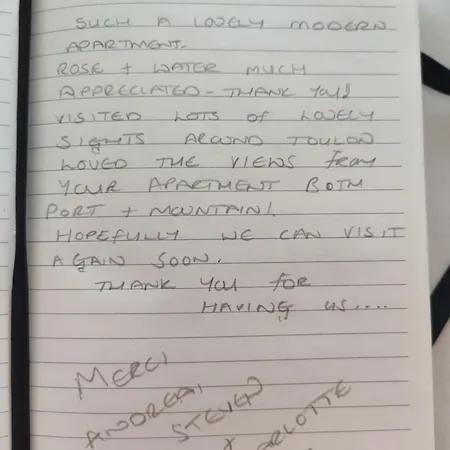 SUCH A LOVELY MODERN
APARTMENT.
ROSE + WATER MUCH
APPRECIATED - THANK YOU!
VISITED LOTS OF LOVELY
SIGHTS AROUND TOULON
LOVED THE VIEWS FROM
YOUR APARTMENT BOTH
PORT + MOUNTAIN!
HOPEFULLY WE CAN VISIT
AGAIN SOON.
THANK YOU FOR
HAVING US....
MERCI
ANDREA,
STEVEN
X